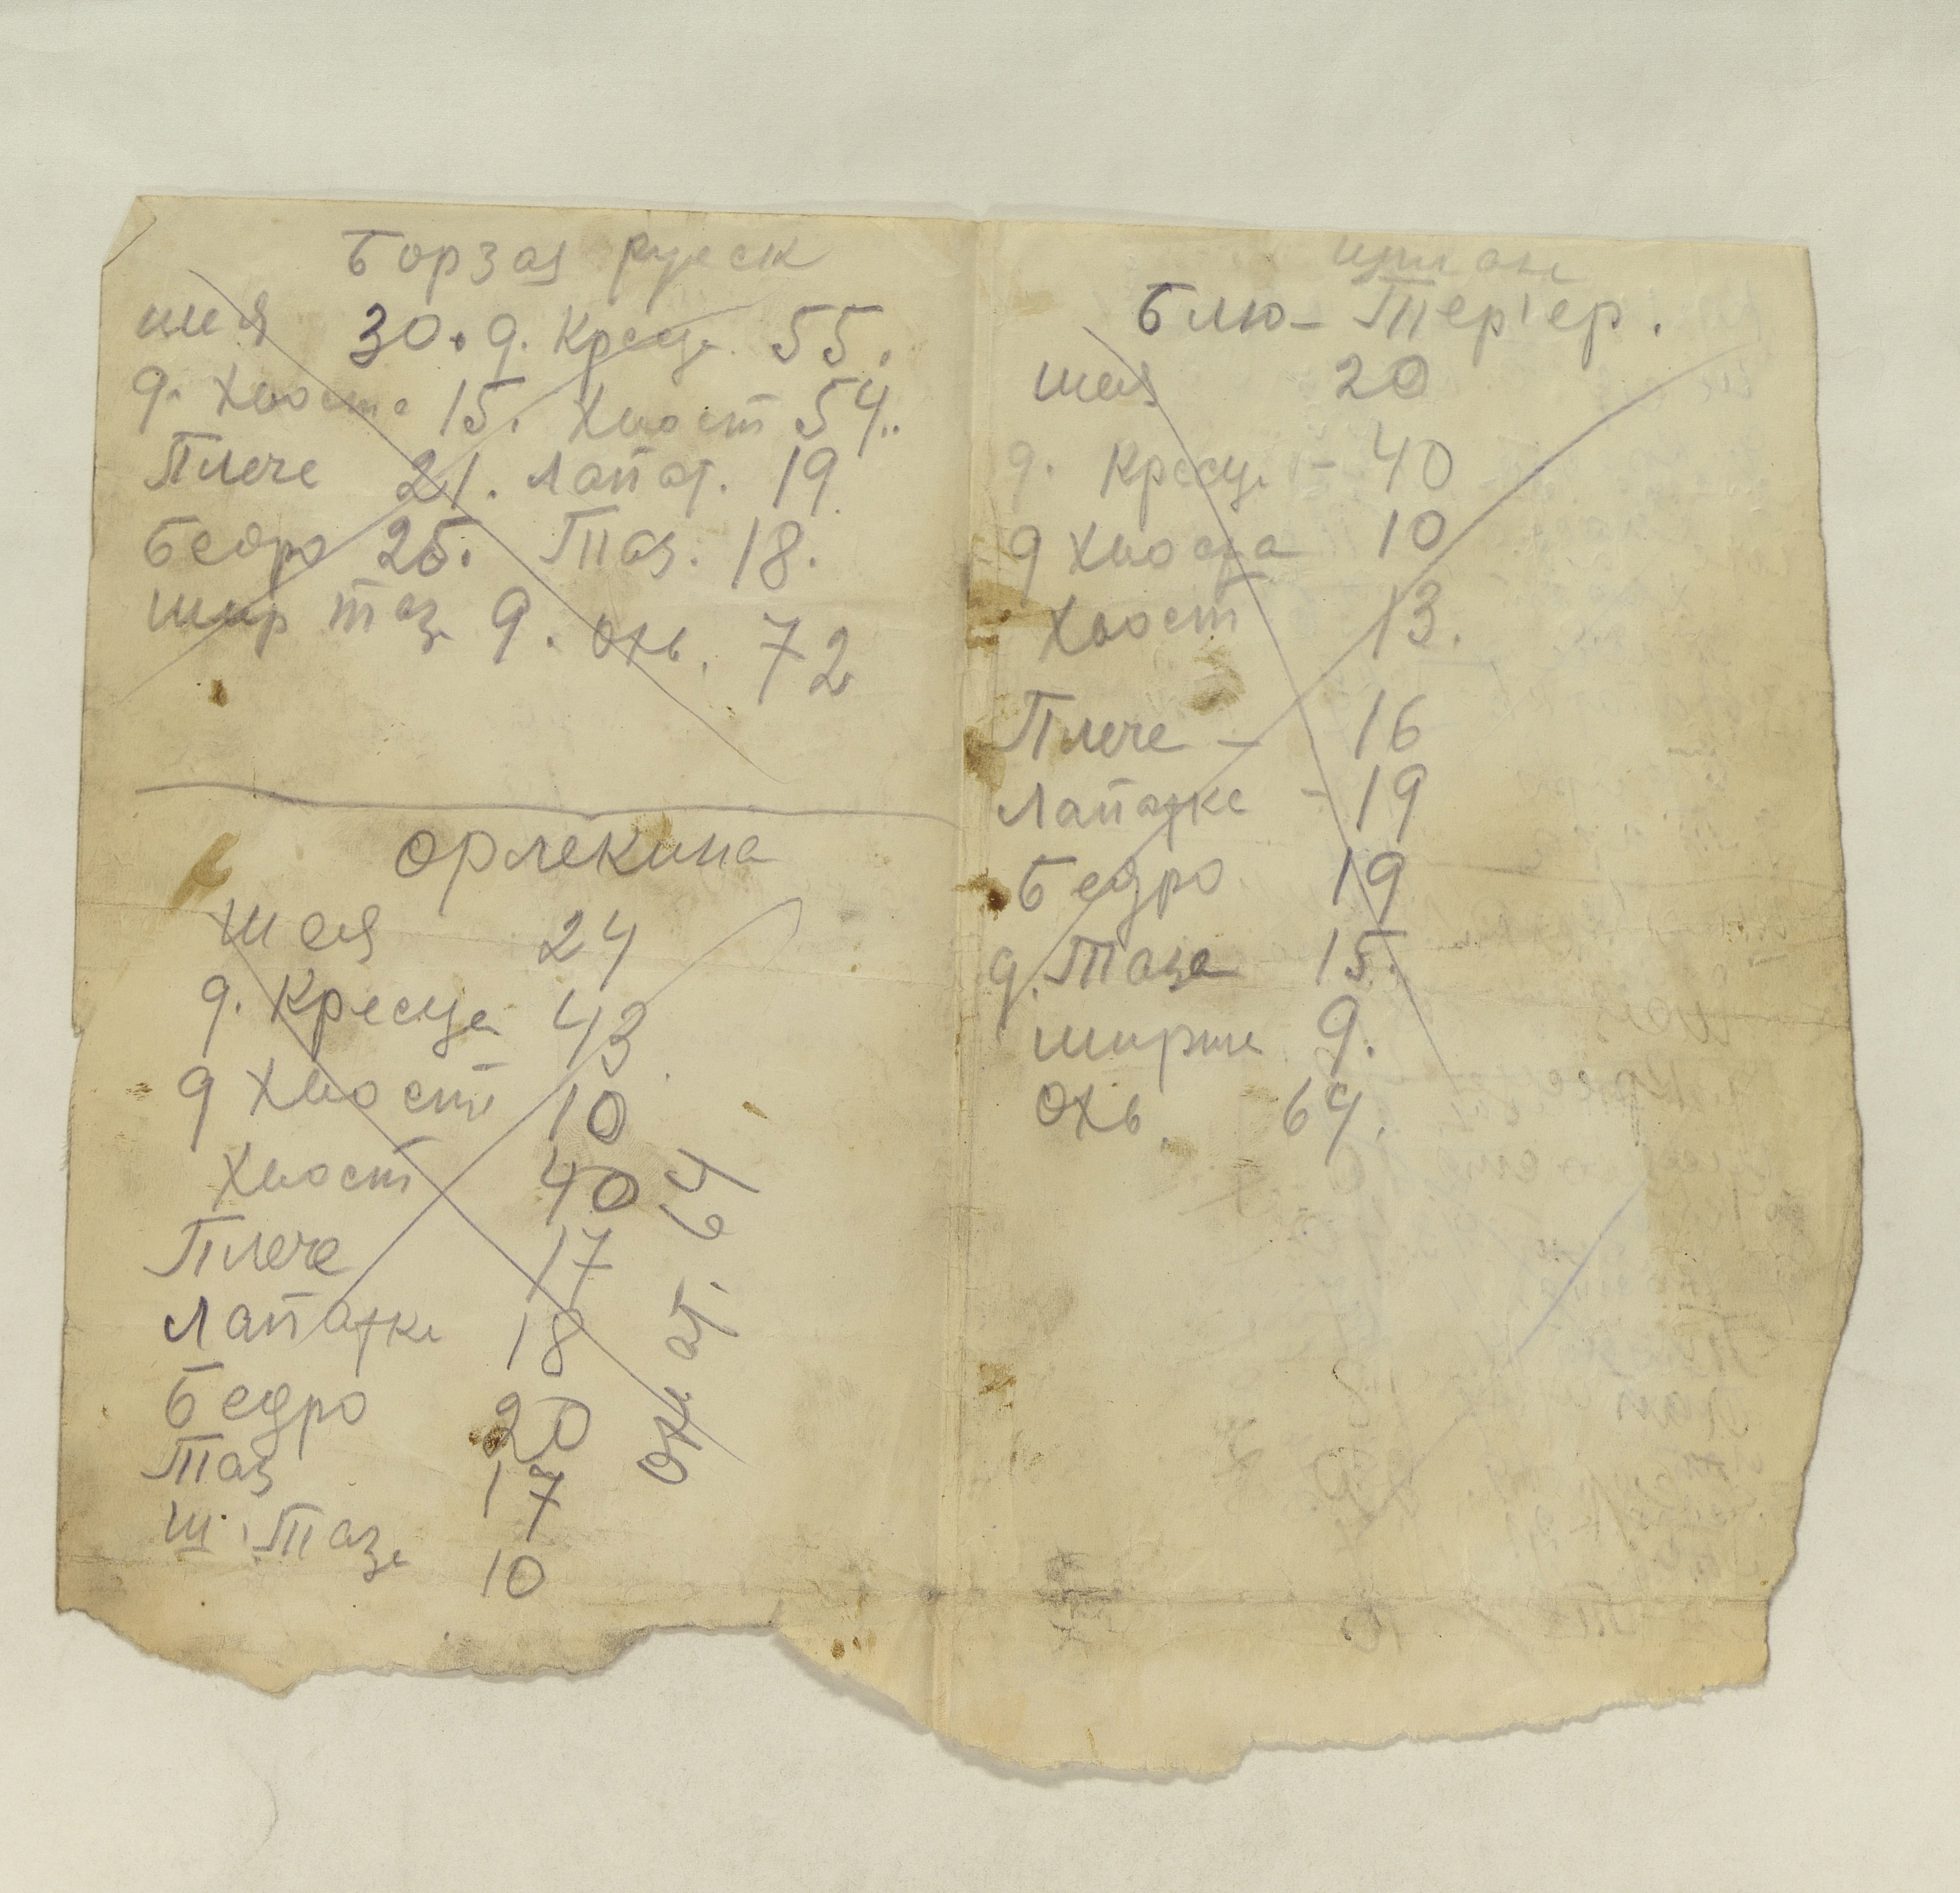 Борзая руск
шея 30. д. Кресце. 55.
д. Хвоста 15. Хвост 54..
Плече 21. лапат. 19
Бедро 25. Таз. 18.
шир таз. 9. охв. 72
Орлекина
шея 24
д. Кресца 43
д Хвост 10
Хвост 40
Плече 17
Лапатке 18
Бедро 20
Таз 17
ш. Таза 10
ат. 64
Блю-Терiер.
шея 20
д. Кресце - 40
д Хвоста 10
Хвост 13.
Плече - 16
Лапатке - 19
Бедро 19
д. Таза 15.
ширше 9.
охв. 64.